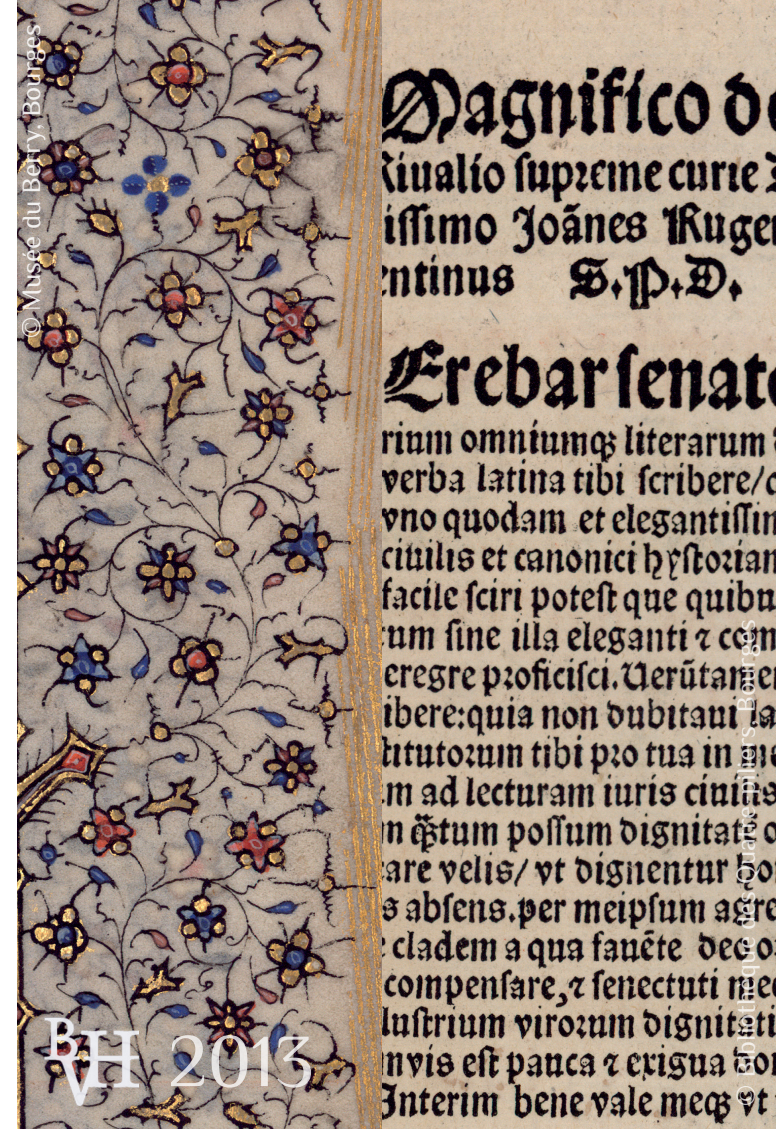 Magnifico do
Riualio ſupreme curie
iſſimo Joānes Ruger
entinus S.P.D.
Erebar ſenato
rium omniumqꝫ literarum
verba latina tibi ſcribere/
vno quodam et elegantiſſim
ciuilis et canonici hyſtoriam
facile ſciri poteſt que quibu
tum ſine illa eleganti ⁊ com
eregre proficiſci. Uerūtamen
ibere: quia non dubitaui la
titutorum tibi pro tua in me
m ad lecturam iuris ciuilis
n qꝫtum poſſum dignitati
are velis/ vt dignentur
s abſens. per meipſum agre
cladem a qua fauēte deo
compenſare, ⁊ ſenectuti mee
luſtrium virorum dignitati
nvis eſt pauca ⁊ exigua
Interim bene vale meqꝫ vt
© Musée du Berry, Bourges
© Bibliothèque des Quatre-piliers, Bourges
BVH 2013